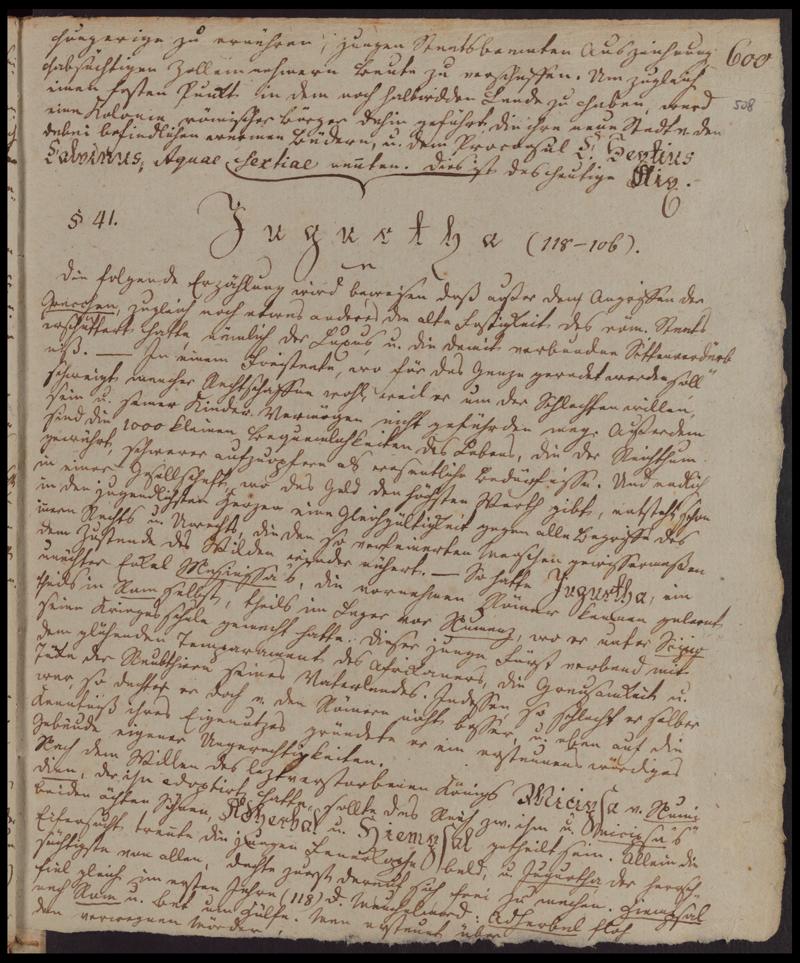 hungerige zu ernähren, jungen Staatsbeamten Auszeichnung,
habsüchtigen Zolleinnehmern Beute zu verschaffen. Um zugleich
einen festen Punkt in dem noch halbwilden Lande zu haben, ward
eine Kolonie römischer Bürger dahin geführt, die ihre neue Stadt v. den
dabei befindlichen warmen Bädern, u. dem Proconsul Sextius
Calvinus, Aquae Sextiae nannten. Dies ist das heutige Aix.
600
508
§ 41.
Jugurtha (118–106).
Die folgende Erzählung wird beweisen daß außer den Angriffen der
Gracchen, zugleich noch etwas anderes die alte Festigkeit des röm. Staats
erschüttert hatte nämlich der Luxus, u. die damit verbundene Sittenverderb
niß. — In einem Freistaate, wo für das Ganze geredet werden soll
schweigt mancher Rechtschaffne wohl, weil er um der Schlechten willen,
sein u. seiner Kinder Vermögen nicht gefährden mag. Außerdem
sind die 1000 kleinen Bequemlichkeiten des Lebens, die der Reichthum
gewährt, schwerer aufzuopfern als wesentliche Bedürfnisse. Und endlich
in einer Gesellschaft, wo das Geld den höchsten Werth gibt, entsteht schon
in den jugendlichsten Herzen eine Gleichgültigkeit gegen alle Begriffe des
innern Rechts u. Unrechts, die den so verfeinerten Menschen gewissermaßen
dem Zustande des Wilden wieder nähert. — So hatte Jugurtha, ein
unächter Enkel Masinissa's, die vornehmen Römer kennen gelernt,
theils in Rom selbst, theils im Lager vor Numanz, wo er unter Scipio
seine Kriegsschule gemacht hatte. Dieser junge Fürst verband mit
dem glühenden Temperament des Afrikaners, die Grausamkeit u.
Tücke der Raubthiere seines Vaterlandes. Indessen so schlecht er selber
war so dachte er doch v. den Römern nicht besser, u. eben auf die
Kenntniß ihres Eigennutzes gründete er ein erstaunenswürdiges
Gebäude eigener Ungerechtigkeiten.
Nach dem Willen des letztverstorbenen Königs Micipsa v. Numi
dien, der ihn adoptirt hatte, sollte das Reich zw. ihm u. Micipsa's
beiden ächten Söhnen, Adherbal u. Hiempsal getheilt sein. Allein die
Eifersucht trennte die jungen bald, u. Jugurtha der herrsch
süchtigste von allen, dachte zuerst darauf sich frei zu machen. Hiempsal
fiel gleich im ersten Jahre (118) d. Meuchelmord: Adherbal floh
nach Rom u. bat um Hülfe. Man erstaunte über
den verwegnen Mörder,